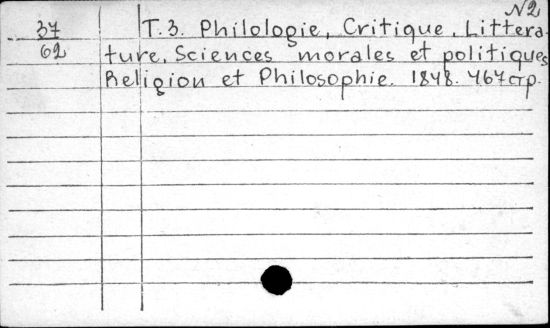 N2
37 T.3. Philologie, Critique, Littera-
62 ture, Sciences morales et politiques
Religion et Philosophie. 1848. 467 стр.